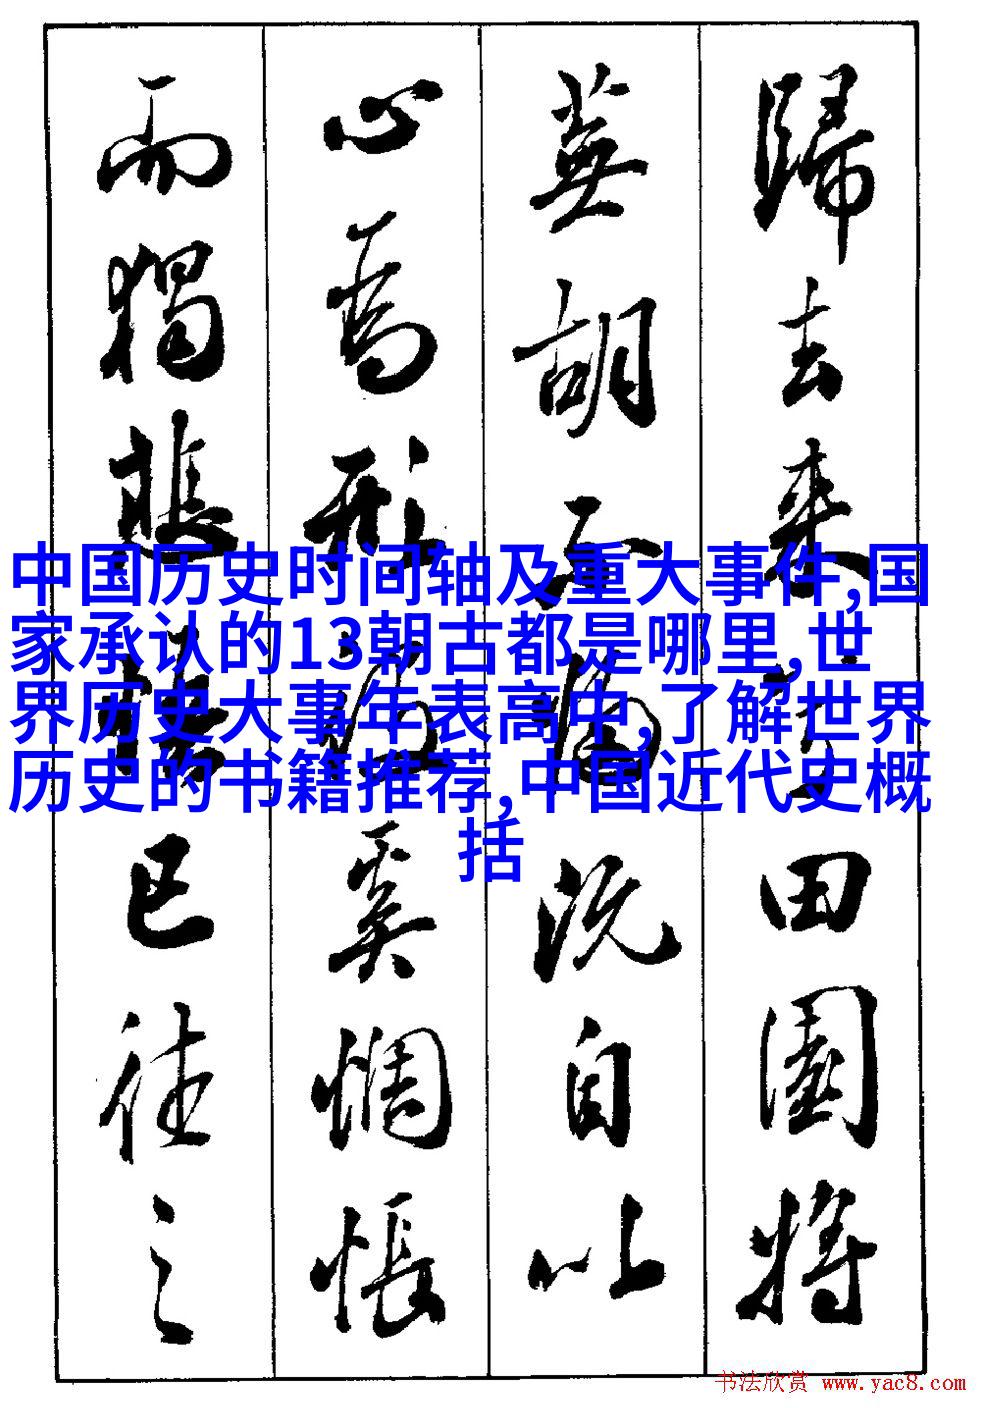 歸去来兮田園将
蕪胡不歸既自以
心爲形役奚惆悵
而獨悲悟已往之
中国历史时间轴及重大事件,国
家承认的13朝古都是哪里,世
界历史大事年表高中,了解世界
历史的书籍推荐,中国近代史概
括
书法欣赏 www.yac8.com